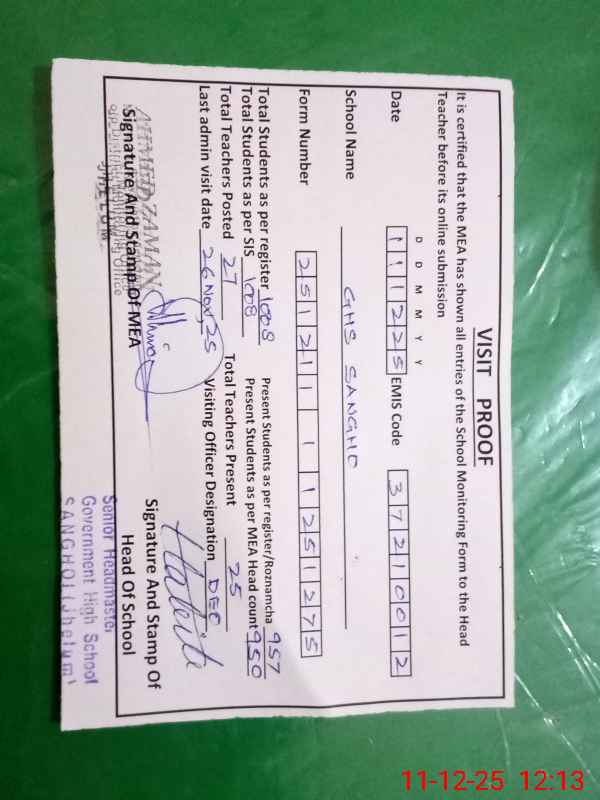 VISIT PROOF
It is certified that the MEA has shown all entries of the School Monitoring Form to the Head
Teacher before its online submission
D D M M Y Y
Date 111225 EMIS Code 37210012
School Name GHS SANGHO
Form Number 251211 1 1251275
Total Students as per register 1008 Present Students as per register/Roznamcha 957
Total Students as per SIS 1008 Present Students as per MEA Head count 950
Total Teachers Posted 27 Total Teachers Present 25
Last admin visit date 26 Nov 25 Visiting Officer Designation DEO
AHMED ZAMAN
Signature And Stamp Of MEA
JHELUM
Signature And Stamp Of
Head Of School
Senior Headmaster
Government High School
SANGHOI (Jhelum)
11-12-25 12:13